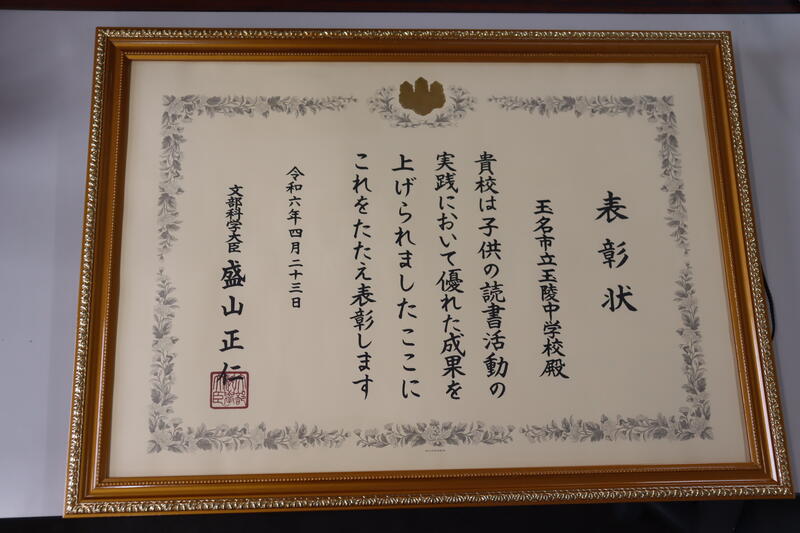 表彰状
玉名市立玉陵中学校殿
貴校は子供の読書活動の
実践において優れた成果を
上げられましたここに
これをたたえ表彰します
令和六年四月二十三日
文部科学大臣 盛山正仁